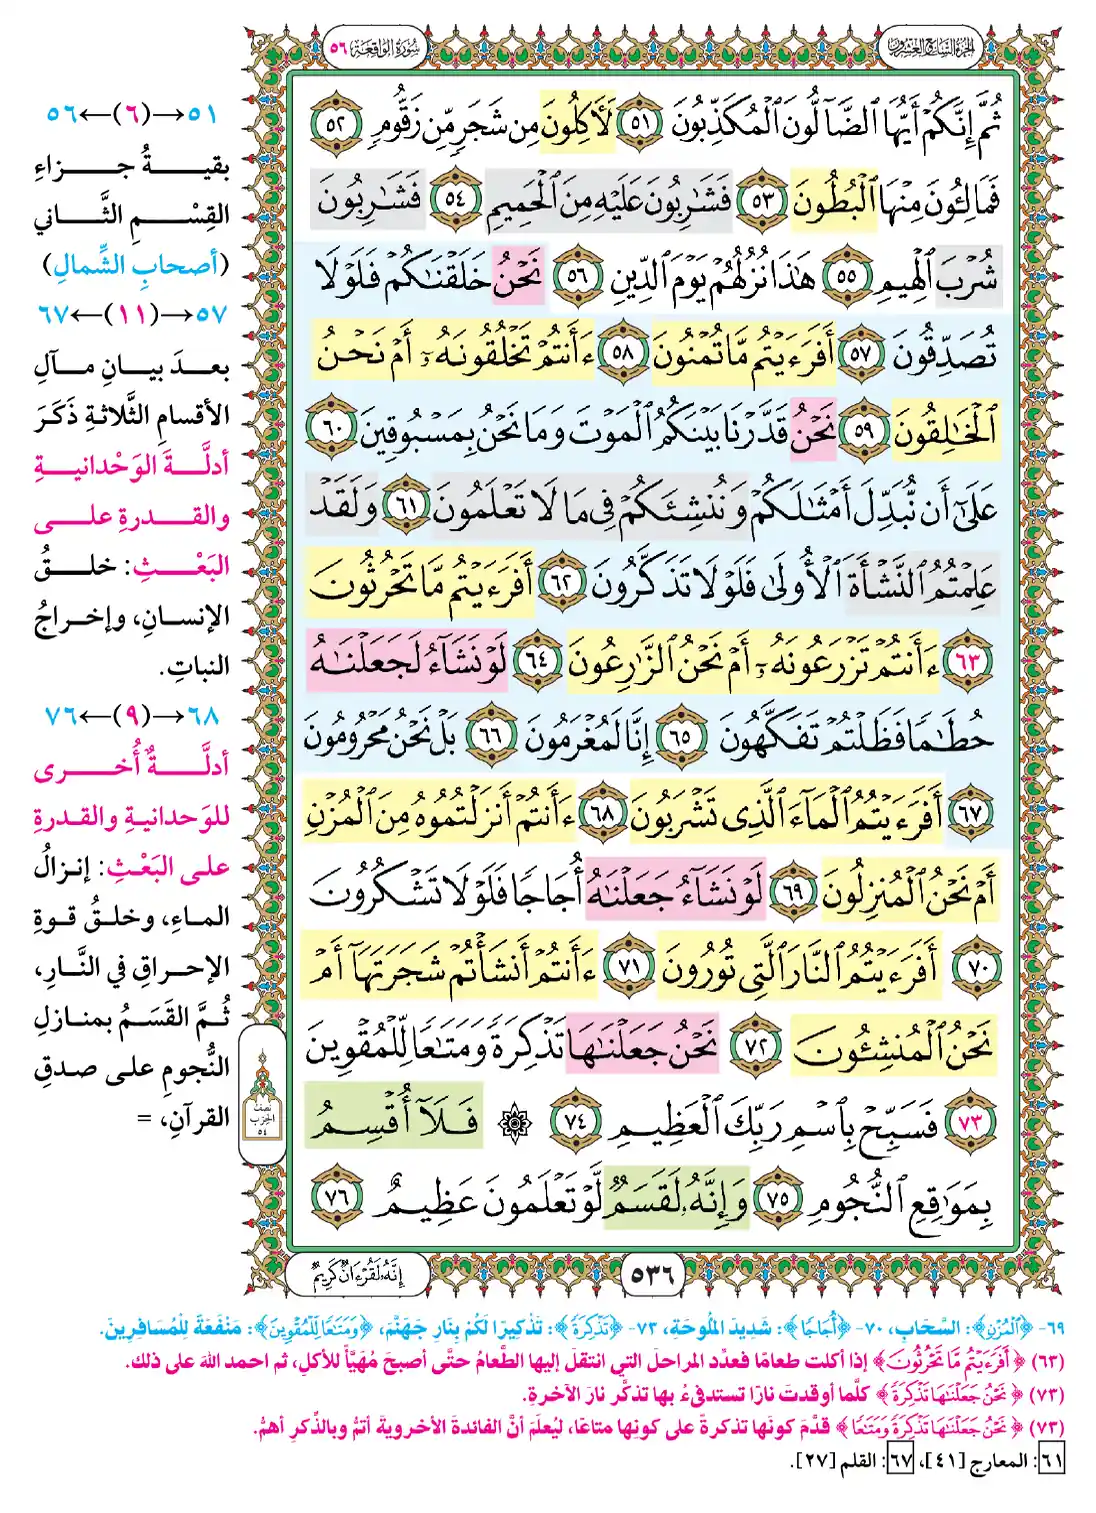 الجزء السابع والعشرون
سورة الواقعة ٥٦
ثُمَّ إِنَّكُمْ أَيُّهَا ٱلضَّآلُّونَ ٱلْمُكَذِّبُونَ ٥١ لَأٓكِلُونَ مِن شَجَرٍ مِّن زَقُّومٍ ٥٢
فَمَالِـُٔونَ مِنْهَا ٱلْبُطُونَ ٥٣ فَشَٰرِبُونَ عَلَيْهِ مِنَ ٱلْحَمِيمِ ٥٤ فَشَٰرِبُونَ
شُرْبَ ٱلْهِيمِ ٥٥ هَٰذَا نُزُلُهُمْ يَوْمَ ٱلدِّينِ ٥٦ نَحْنُ خَلَقْنَٰكُمْ فَلَوْلَا
تُصَدِّقُونَ ٥٧ أَفَرَءَيْتُم مَّا تُمْنُونَ ٥٨ ءَأَنتُمْ تَخْلُقُونَهُۥٓ أَمْ نَحْنُ
ٱلْخَٰلِقُونَ ٥٩ نَحْنُ قَدَّرْنَا بَيْنَكُمُ ٱلْمَوْتَ وَمَا نَحْنُ بِمَسْبُوقِينَ ٦٠
عَلَىٰٓ أَن نُّبَدِّلَ أَمْثَٰلَكُمْ وَنُنشِئَكُمْ فِى مَا لَا تَعْلَمُونَ ٦١ وَلَقَدْ
عَلِمْتُمُ ٱلنَّشْأَةَ ٱلْأُولَىٰ فَلَوْلَا تَذَكَّرُونَ ٦٢ أَفَرَءَيْتُم مَّا تَحْرُثُونَ
٦٣ ءَأَنتُمْ تَزْرَعُونَهُۥٓ أَمْ نَحْنُ ٱلزَّٰرِعُونَ ٦٤ لَوْ نَشَآءُ لَجَعَلْنَٰهُ
حُطَٰمًا فَظَلْتُمْ تَفَكَّهُونَ ٦٥ إِنَّا لَمُغْرَمُونَ ٦٦ بَلْ نَحْنُ مَحْرُومُونَ
٦٧ أَفَرَءَيْتُمُ ٱلْمَآءَ ٱلَّذِى تَشْرَبُونَ ٦٨ ءَأَنتُمْ أَنزَلْتُمُوهُ مِنَ ٱلْمُزْنِ
أَمْ نَحْنُ ٱلْمُنزِلُونَ ٦٩ لَوْ نَشَآءُ جَعَلْنَٰهُ أُجَاجًا فَلَوْلَا تَشْكُرُونَ
٧٠ أَفَرَءَيْتُمُ ٱلنَّارَ ٱلَّتِى تُورُونَ ٧١ ءَأَنتُمْ أَنشَأْتُمْ شَجَرَتَهَآ أَمْ
نَحْنُ ٱلْمُنشِـُٔونَ ٧٢ نَحْنُ جَعَلْنَٰهَا تَذْكِرَةً وَمَتَٰعًا لِّلْمُقْوِينَ
٧٣ فَسَبِّحْ بِٱسْمِ رَبِّكَ ٱلْعَظِيمِ ٧٤ ۞ فَلَآ أُقْسِمُ
بِمَوَٰقِعِ ٱلنُّجُومِ ٧٥ وَإِنَّهُۥ لَقَسَمٌ لَّوْ تَعْلَمُونَ عَظِيمٌ ٧٦
٥٣٦
إِنَّهُۥ لَقُرْءَانٌ كَرِيمٌ
٥١→(٦)←٥٦
بقيةُ جزاءِ
القِسْمِ الثَّاني
(أصحابِ الشِّمالِ)
٥٧→(١١)←٦٧
بعدَ بيانِ مآلِ
الأقسامِ الثَّلاثةِ ذَكَرَ
أدلَّةَ الوَحْدانيةِ
والقدرةِ على
البَعْثِ: خلقُ
الإنسانِ، وإخراجُ
النباتِ.
٦٨→(٩)←٧٦
أدلَّةٌ أُخرى
للوَحدانيةِ والقدرةِ
على البَعْثِ: إنزالُ
الماءِ، وخلقُ قوةِ
الإحراقِ في النَّارِ،
ثُمَّ القَسَمُ بمنازلِ
النُّجومِ على صدقِ
القرآنِ، =
نصف
الحزب
٥٤
٦٩- ﴿ٱلْمُزْنِ﴾: السَّحَابِ، ٧٠- ﴿أُجَاجًا﴾: شَدِيدَ المُلُوحَةِ، ٧٣- ﴿تَذْكِرَةً﴾: تَذْكِيرًا لَكُمْ بِنَارِ جَهَنَّمَ، ﴿وَمَتَٰعًا لِّلْمُقْوِينَ﴾: مَنْفَعَةً لِلْمُسَافِرِينَ.
(٦٣) ﴿أَفَرَءَيْتُم مَّا تَحْرُثُونَ﴾ إذا أكلت طعامًا فعدِّد المراحلَ التي انتقلَ إليها الطَّعامُ حتَّى أصبحَ مُهَيَّأً للأكلِ، ثم احمد الله على ذلك.
(٧٣) ﴿نَحْنُ جَعَلْنَٰهَا تَذْكِرَةً﴾ كلَّما أوقدتَ نارًا تستدفىءُ بها تذكَّر نارَ الآخرةِ.
(٧٣) ﴿نَحْنُ جَعَلْنَٰهَا تَذْكِرَةً وَمَتَٰعًا﴾ قدَّمَ كونَها تذكرةً على كونِها متاعًا، ليُعلَمَ أنَّ الفائدةَ الأخرويةَ أتمُّ وبالذِّكرِ أهمُّ.
٦١: المعارج [٤١]، ٦٧: القلم [٢٧].